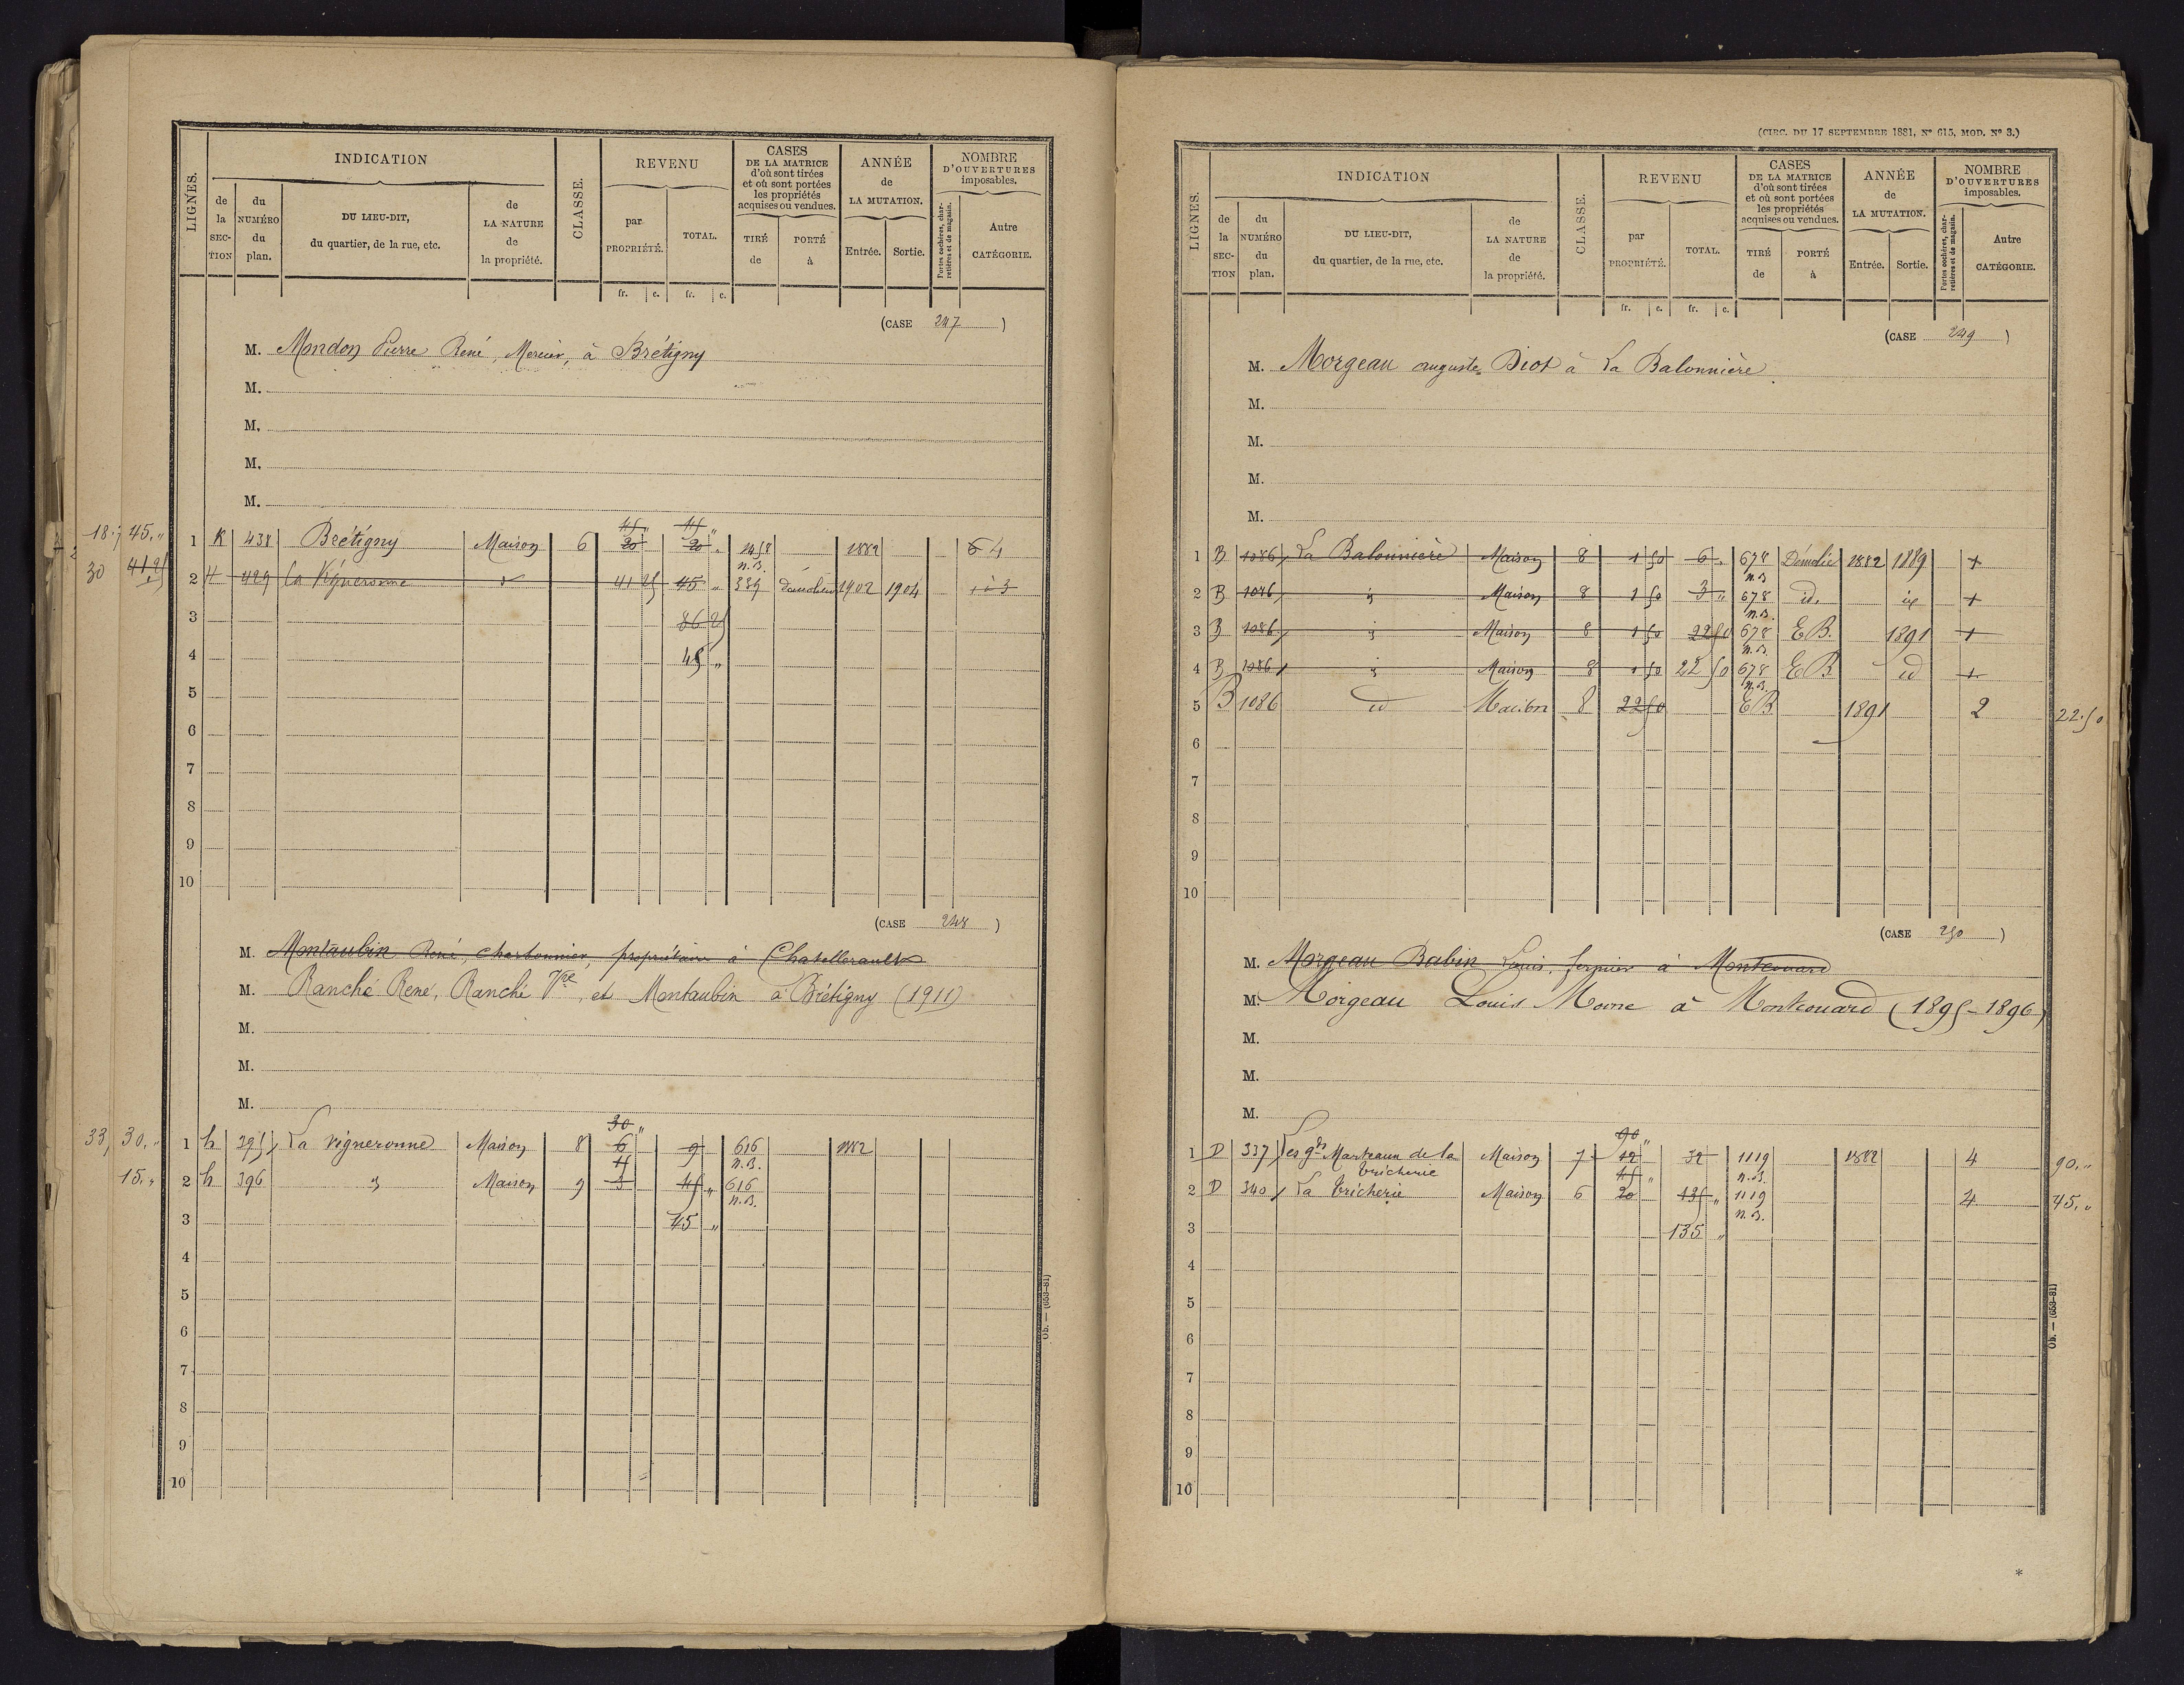 LIGNES.
INDICATION
de la SECTION
du NUMÉRO du plan.
DU LIEU-DIT, du quartier, de la rue, etc.
de LA NATURE de la propriété.
CLASSE.
REVENU
par PROPRIÉTÉ.
TOTAL.
fr. c. fr. c.
CASES DE LA MATRICE d'où sont tirées et où sont portées les propriétés acquises ou vendues.
TIRÉ de
PORTÉ à
ANNÉE de LA MUTATION.
Entrée. Sortie.
NOMBRE D'OUVERTURES imposables.
Portes cochères, charretières et de magasin.
Autre CATÉGORIE.
(CASE 247)
M. Mondon Pierre René, Mercier, à Brétigny
M.
M.
M.
M.
45 „ 45 „
18. 45. „ 1 K 438 Brétigny Maison 6 20 20 „ 1458 1882 6 4
n.B.
30 41 25 2 H 429 la Vigneronne d° 41 25 45 „ 389 Démolition 1902 1904 1 à 3
3 86 25
4 45 „
5
6
7
8
9
10
(CASE 248)
M. Montaubin René, charbonnier, propriétaire à Chatellerault
M. Ranché René, Ranché Vve, et Montaubin à Brétigny (1911)
M.
M.
M.
30 „
33, 30. „ 1 h 395 La vigneronne Maison 8 6 9 616 1882
15 n.B.
15. „ 2 h 396 id Maison 9 3 45 „ 616
n.B.
3 45 „
4
5
6
7
8
9
10
Ob. — (653-81)
(CIRC. DU 17 SEPTEMBRE 1881, N° 615, MOD. N° 3.)
LIGNES.
INDICATION
de la SECTION
du NUMÉRO du plan.
DU LIEU-DIT, du quartier, de la rue, etc.
de LA NATURE de la propriété.
CLASSE.
REVENU
par PROPRIÉTÉ.
TOTAL.
fr. c. fr. c.
CASES DE LA MATRICE d'où sont tirées et où sont portées les propriétés acquises ou vendues.
TIRÉ de
PORTÉ à
ANNÉE de LA MUTATION.
Entrée. Sortie.
NOMBRE D'OUVERTURES imposables.
Portes cochères, charretières et de magasin.
Autre CATÉGORIE.
(CASE 249)
M. Morgeau auguste Diot à La Balonnière
M.
M.
M.
M.
1 B 1086 La Balonnière Maison 8 1 50 6 „ 678 Démolie 1882 1889 1
n.B.
2 B 1086 id Maison 8 1 50 3 „ 678 id. id 1
n.B.
3 B 1086 id Maison 8 1 50 22 50 678 EB. 1891 1
n.B.
4 B 1086 id Maison 8 1 50 22 50 678 EB id 1
n.B.
5 B 1086 id Maison 8 22 50 EB 1891 2 22.50
6
7
8
9
10
(CASE 250)
M. Morgeau Babin Louis, fermier à Montcouard
M. Morgeau Louis Moine à Montcouard (1895-1896)
M.
M.
M.
90 „
1 D 337 Les gds Marteaux de la Maison 7 12 32 1119 1882 4 90. „
tricherie 45 „ n.B.
2 D 340 La tricherie Maison 6 20 135 „ 1119 4 45. „
n.B.
3 135 „
4
5
6
7
8
9
10
Ob. — (653-81)
*